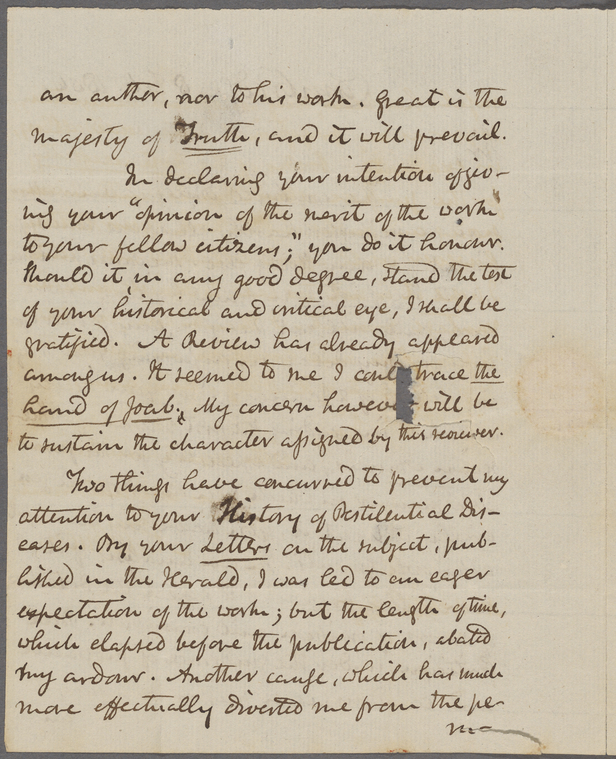 an author, nor to his work. Great is the
majesty of Truth, and it will prevail.
In declaring your intention of giv-
ing your "opinion of the merit of the work
to your fellow citizens;" you do it honour.
Should it, in any good degree, stand the test
of your historical and critical eye, I shall be
gratified. A Review has already appeared
among us. It seemed to me I coul trace the
hand of Joab. My concern however will be
to sustain the character assigned by this reviewer.
Two things have concurred to prevent my
attention to your History of Pestilential Dis-
eases. By your Letters on the subject, pub-
lished in the Herald, I was led to an eager
expectation of the work; but the length of time,
which elapsed before the publication, abated
my ardour. Another cause, which has much
more effectually diverted me from the pe-